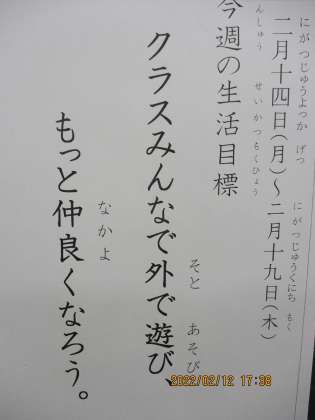 にがつじゅうよっか げつ にがつじゅうくにち もく
二月十四日(月)～二月十九日(木)
んしゅう せいかつもくひょう
今週の生活目標
そと あそび
クラスみんなで外で遊び、
なかよ
もっと仲良くなろう。
2022/02/12 17:38